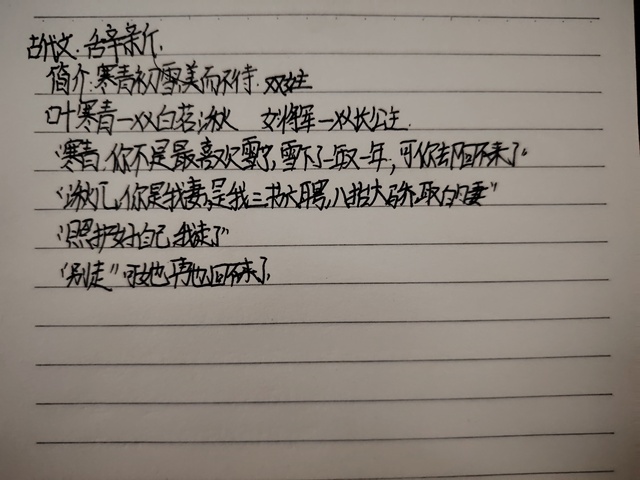 古代文. 舌辛亲斤.
简介:寒青初雪,美而不待. 双女主
叶寒青一 双白茗湫 女将军一 双长公主.
“寒青,你不是最喜欢雪了,雪下了一年又一年,可你去回不来了”
“湫儿,你是我妻,是我三书六聘,八抬大轿,取的妻”
“照护好自己,我走了”
“别走”可她再也回不来了.